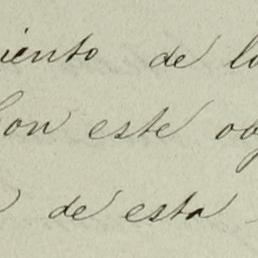 iento de lo
Con este ob
de esta